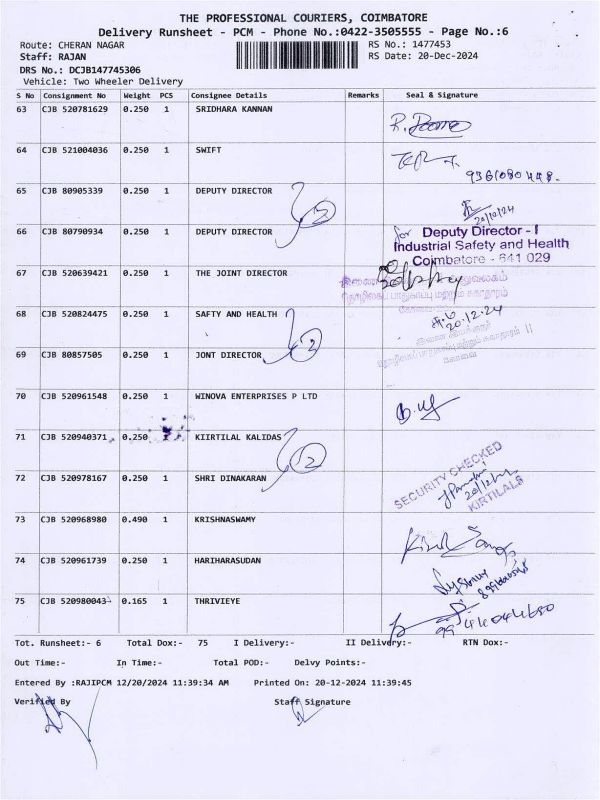 THE PROFESSIONAL COURIERS, COIMBATORE
Delivery Runsheet - PCM - Phone No.:0422-3505555 - Page No.:6
Route: CHERAN NAGAR RS No.: 1477453
Staff: RAJAN RS Date: 20-Dec-2024
DRS No.: DCJB147745306
Vehicle: Two Wheeler Delivery
S No Consignment No Weight PCS Consignee Details Remarks Seal & Signature
63 CJB 520781629 0.250 1 SRIDHARA KANNAN
64 CJB 521004036 0.250 1 SWIFT
65 CJB 80905339 0.250 1 DEPUTY DIRECTOR
2
20/12/24
66 CJB 80790934 0.250 1 DEPUTY DIRECTOR
for Deputy Director - I
Industrial Safety and Health
Coimbatore - 641 029
67 CJB 520639421 0.250 1 THE JOINT DIRECTOR
68 CJB 520824475 0.250 1 SAFTY AND HEALTH
20.12.24
2
69 CJB 80857505 0.250 1 JONT DIRECTOR
70 CJB 520961548 0.250 1 WINOVA ENTERPRISES P LTD
71 CJB 520940371 0.250 1 KIIRTILAL KALIDAS
2
SECURITY CHECKED
KIRTILALS
72 CJB 520978167 0.250 1 SHRI DINAKARAN
73 CJB 520968980 0.490 1 KRISHNASWAMY
74 CJB 520961739 0.250 1 HARIHARASUDAN
75 CJB 520980043 0.165 1 THRIVIEYE
Tot. Runsheet:- 6 Total Dox:- 75 I Delivery:- II Delivery:- RTN Dox:-
Out Time:- In Time:- Total POD:- Delvy Points:-
Entered By :RAJIPCM 12/20/2024 11:39:34 AM Printed On: 20-12-2024 11:39:45
Verified By Staff Signature